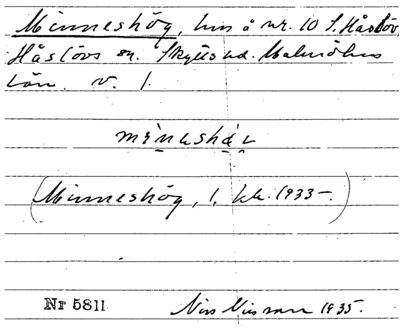 Minneshög, hus å nr. 10 S. Håslöv,
Håslövs sn. Skytts hd. Malmöhus
län. v. 1.
mìnəshá̱v
(Minneshög, 1, kk. 1933-.)
Nr 5811 Nils Nilsson 1935.